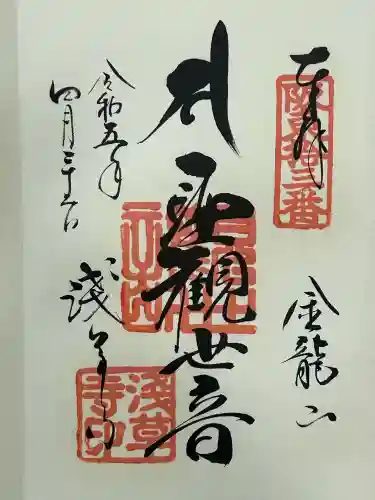 奉拝
坂東拾三番
金龍山
聖観世音
令和五年
四月三十日
浅草寺
淺草
寺印